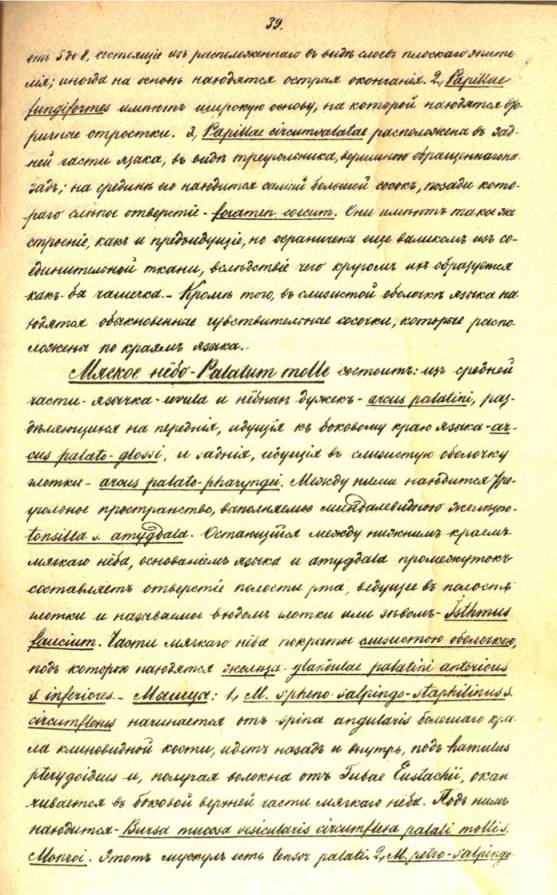 39.
отъ 5 до 8, состоящіе изъ расположеннаго въ видѣ слоевъ плоскаго эпите
лія; иногда на основѣ находятся острыя окончанія. 2, Papillae
fungiformes имѣютъ широкую основу, на которой находятся вто
ричные отростки. 3, Papillae circumvalatae расположены въ зад-
ней части языка, въ видѣ треугольника, вершиною обращеннаго на-
задъ; на срединѣ его находится самый большой сосокъ, позади кото-
раго слѣпое отверстіе - foramen coecum. Они имѣютъ такое же
строеніе, какъ и предыдущіе, но ограничены еще валикомъ изъ со-
единительной ткани, вслѣдствіе чего кругомъ ихъ образуется
какъ-бы чашечка. - Кромѣ того, въ слизистой оболочкѣ языка на
ходятся обыкновенные чувствительные сосочки, которые распо-
ложены по краямъ языка. -
Мягкое нёбо - Palatum molle состоитъ: изъ средней
части - язычка - uvula и нёбныхъ дужекъ - arcus palatini, раз-
дѣляющихся на переднія, идущія къ боковому краю языка - ar-
cus palato-glossi, и заднія, идущія въ слизистую оболочку
глотки - arcus palato-pharyngei. Между ними находится тре-
угольное пространство, заполняемое миндалевидною железою -
tonsilla s. amygdala. Остающійся между нижнимъ краемъ
мягкаго нёба, основаніемъ языка и amygdala промежутокъ
составляетъ отверстіе полости рта, ведущее въ полость
глотки и называемое входомъ глотки или зѣвомъ - Isthmus
faucium. Части мягкаго нёба покрыты слизистою оболочкою,
подъ которою находятся железы - glandulae palatini anteriores
s inferiores. - Мышцы: 1, M. spheno-salpingo-staphilinus s.
circumflexus начинается отъ spina angularis большаго кры
ла клиновидной кости, идетъ назадъ и внутрь, подъ hamulus
pterygoideus и, получая волокна отъ Tubae Eustachii, окан
чивается въ боковой верхней части мягкаго нёба. Подъ нимъ
находится - Bursa mucosa vesicularis circumflexa palati mollis s.
Monroi. Этотъ мускулъ есть tensor palati. 2, M. petro-salpingo-